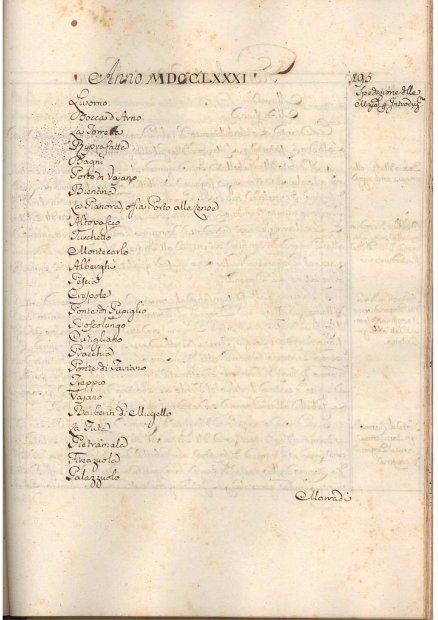 Anno MDCCLXXXI
195
Spedizione delle
Livorno
Bocca d'Arno
La Torretta
Ripafratta
Bagni
Porto di Vajano
Bientina
La Pianora, o sia Porto alle Lenze
Altopascio
Turchetto
Montecarlo
Alberghi
Pescia
Crespole
Ponte di Popiglio
Boscolungo
Cutigliano
Pracchia
Ponte di Taviano
Treppio
Vajano
Barberin di Mugello
La Futa
Pietramala
Firenzuola
Palazzuolo
Marradi